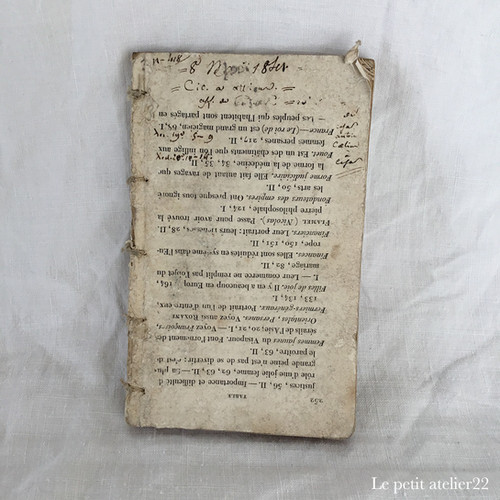 8
Cic.
252 TABLE
justices, 56, II. — Importance et difficulté d
rôle d'une jolie femme, 62, 63, II. — La plus
grande peine n'est pas de se divertir; c'est
le paraître, 63, II.
Femmes jaunes du Visapour. Font l'ornement de
sérails de l'Asie; 20; 21, I. — Voyez Françoises,
Orientales, Persanes. Voyez aussi ROXANE
Fermiers-généraux. Portrait de l'un d'entre eux,
133, 134, I.
Filles de joie. Il y en a beaucoup en Europ 164,
I. — Leur commerce ne remplit pas l'objet du
mariage, 82, II.
Finances. Elles sont réduites en système dans l'Eu-
rope, 150, 151, II.
Financiers. Leur portrait: leurs richesses, 28, II.
FLAMEL (Nicolas). Passe pour avoir trouvé la
pierre philosophale, 124, I.
Fondateurs des empires. Ont presque tous ignoré
les arts, 50, II.
Forme judiciaire. Elle fait autant de ravages que
la forme de la médecine, 34, 35, II.
Fouet. Est un des châtiments que l'on inflige aux
femmes persanes, 219, II.
France — (Le roi de) est un grand magicien, 68, I
— Les peuples qui l'habitent sont partagés en
Le petit atelier22